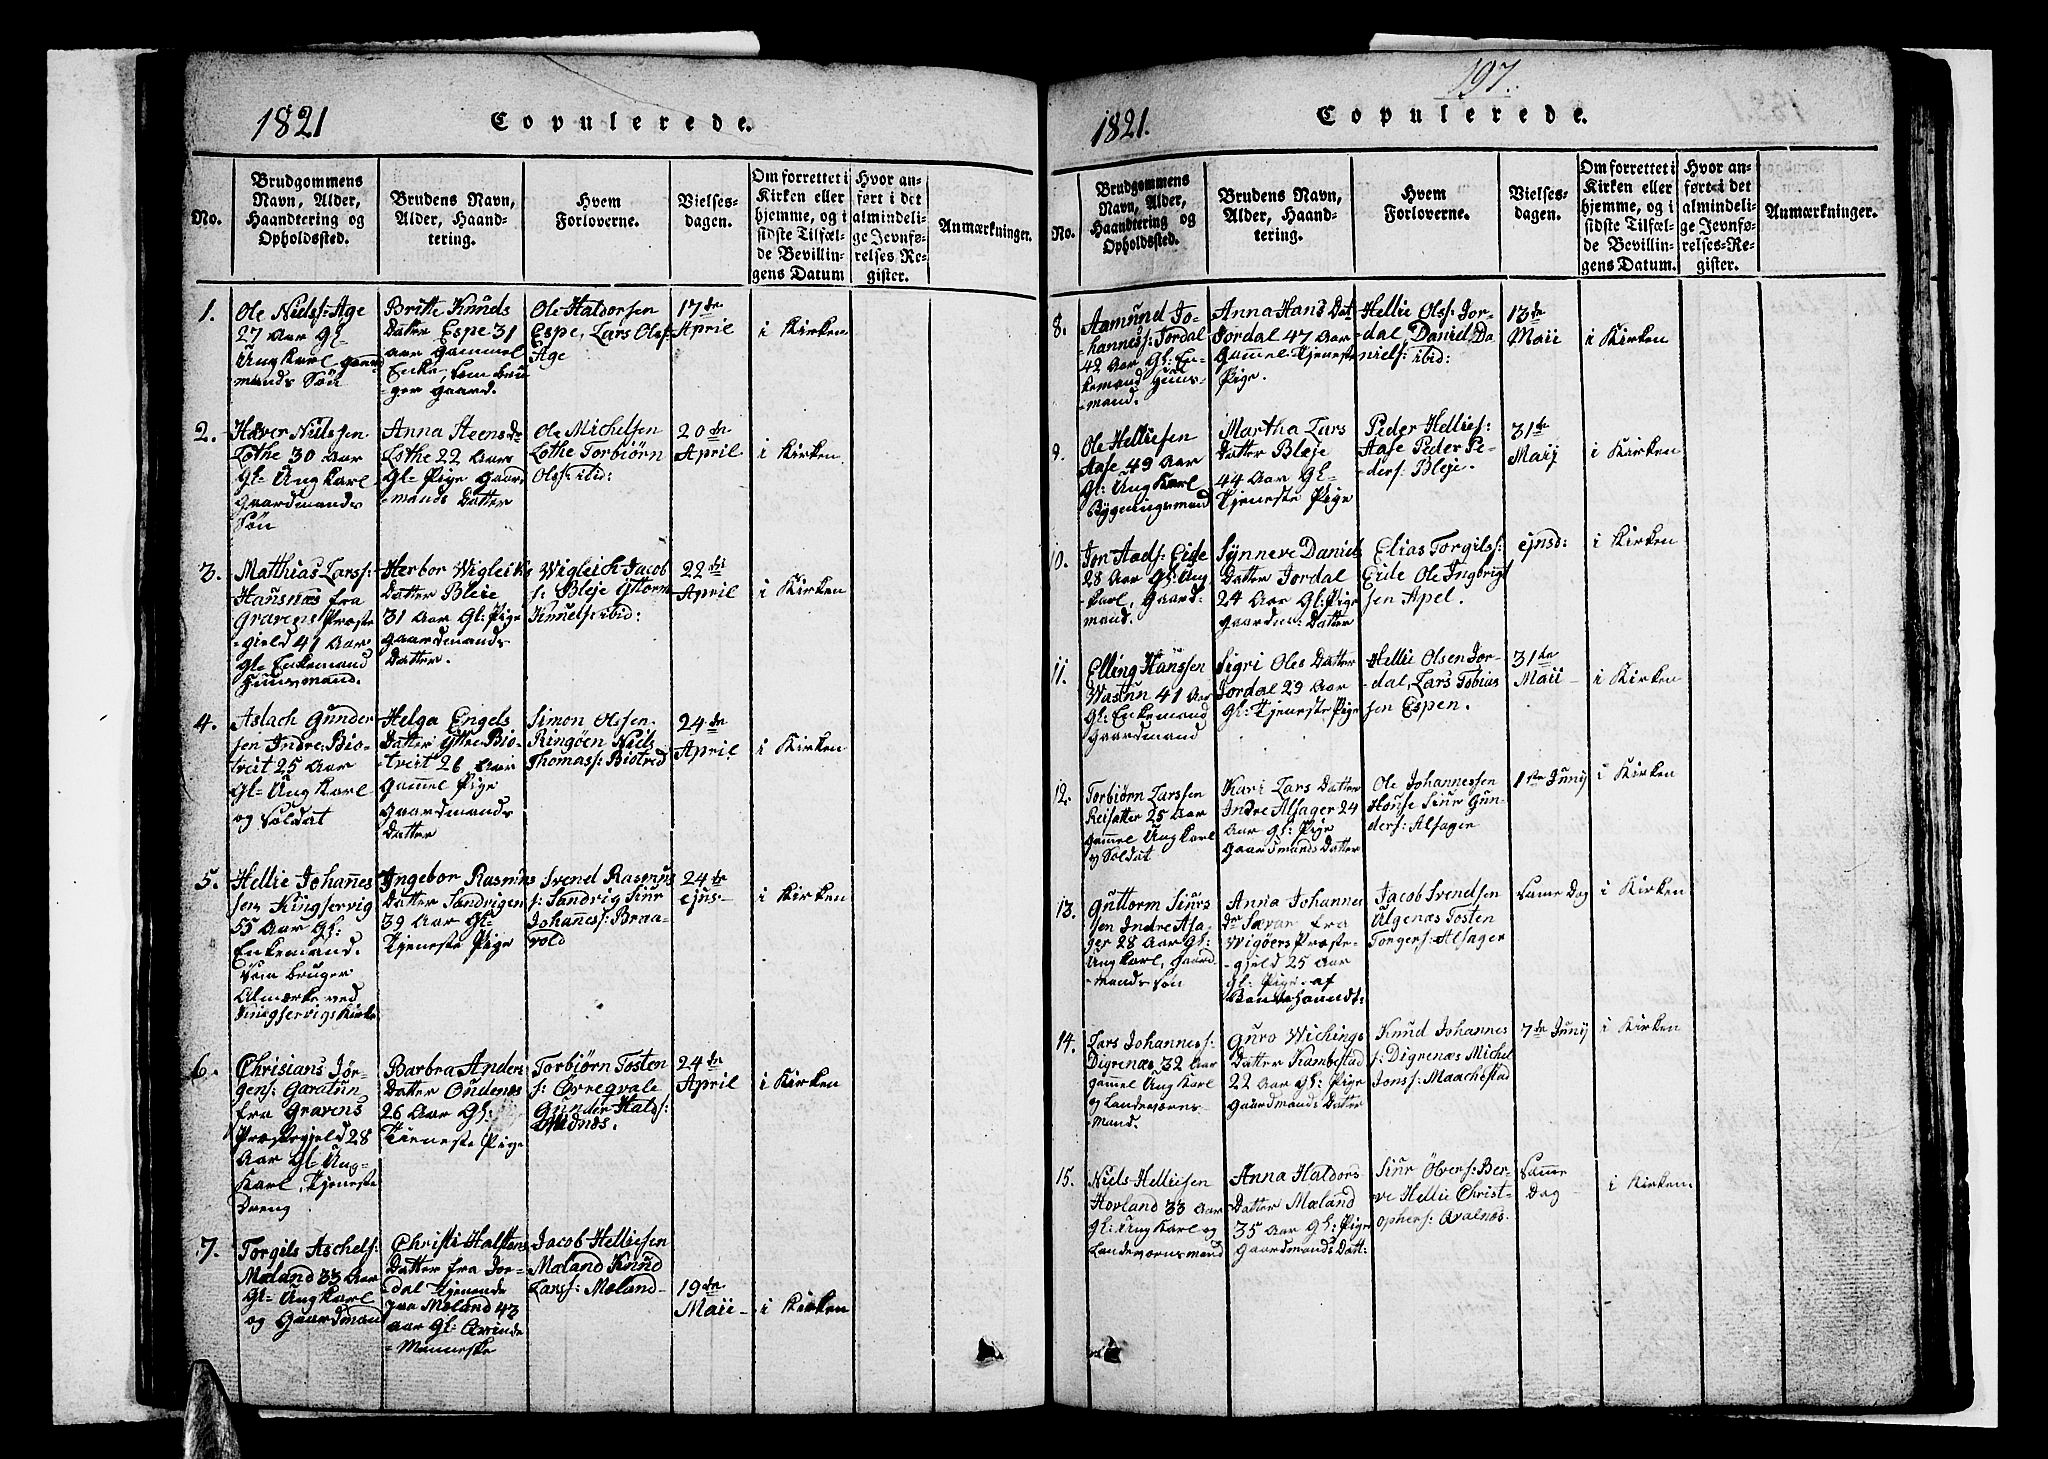 1821
Copulerede.
No.
Brudgommens
Navn, Alder,
Haandtering og
Opholdssted.
Brudens Navn,
Alder, Haand-
tering.
Hvem
Forloverne.
Vielses-
dagen.
Om forrettet i
Kirken eller
hjemme, og i
sidste Tilfæl-
de Bevillin-
gens Datum
Hvor an-
ført i det
almindeli-
ge Jevnfø-
relses-Re-
gister.
Anmærkninger.
1.
Ole Nielss: Age
27 Aar Gl-
Ungkarl gaard
mands Søn
Britte Knuds
Datter Espe 31
aar Gammel
Enke, som bru
ger gaard.
Ole Haldorsen
Espe, Lars Olss:
Age
17de
April
i Kirken
2.
Haver Nielssen
Lothe 30 Aar
Gl- Ungkarl
gaardmands
Søn
Anna Steensdr
Lothe 22 Aar
Gl- Pige Gaard
-mands Datter
Ole Michelsen
Lothe Torbiørn
Olss: ibid:
20de
April
i Kirken
3.
Matthias Larss:
Hausnæs fra
Gravens Præste
-gield 41 Aar
Gl- Enkemand
Huusmand.
Herbor Wigleiks
Datter Bleie
31 Aar Gl: Pige
gaardmands
Datter.
Wigleich Jacob
s: Bleje Guttorm
Knuds: ibid:
22de
April
i Kirken
4.
Aslach Gunder
sen Indre Bio-
tveit 25 Aar
Gl- Ungkarl
og Soldat
Helga Engels
Datter Yttre Bio-
-tveit 26 Aar
Gammel Pige
Gaardmands
Datter
Simon Olssen
Ringøen Niels
Thomass: Biotved
24de
April
i Kirken
5.
Hellie Johannes
sen Kingservig
55 Aar Gl:
Enkemand.
som bruger
Almærke ved
Kingservigs Kirke
Ingebor Rasmus
Datter Sandvigen
39 Aar Gl-
Tjeneste Pige
Svend Rasmus
s: Sandvig Siur
Johannes: Braa-
vold
24de
ejus-
i Kirken
6.
Chrisians Jør-
gens: Garatun
fra Gravens
Præstegjeld 28
Aar Gl- Ung-
Karl, Tjeneste
Dreng
Barbra Anders
Datter Oudenæs
26 Aar Gl:
Tieneste Pige
Torbiørn Tosten
s: Ørregvale
Gunder Hald s:
24de
April
i Kirken
7.
Torgils Aschels:
Mæland 33 Aar
Gl- Ungkarl
og Gaardmand
Christi Halstens
Datter fra Jor-
dal tienende
paa Mæland 43
aar Gl: Qvinde
-Menneske
Jacob Helliesen
Mæland Knud
Larss: Mæland-
19de
Maii-
i Kirken
197.
1821.
Copulerede.
No.
Brudgommens
Navn, Alder,
Haandtering og
Opholdssted.
Brudens Navn,
Alder, Haand-
tering.
Hvem
Forloverne.
Vielses-
dagen.
Om forrettet i
Kirken eller
hjemme, og i
sidste Tilfæl-
de Bevillin-
gens Datum.
Hvor an-
ført i det
almindeli-
ge Jevnfø-
relses-Re-
gister.
Anmærkninger.
8.
Aamund Jo-
-hannes: Jordal
42 Aar Gl: En-
kemand Huus-
-mand.
Anna Hans Dat
Jordal 47 Aar
Gammel Tjeneste
Pige.
Hellie Olss: Jor-
dal, Daniel Da
niels: ibid:
13de
Maii
i Kirken
9.
Ole Helliesen
Aase 49 Aar
Gl: Ungkarl
Bygningsmand
Martha Lars
Datter Bleje
44 Aar Gl-
Tjeneste Pige
Peder Hellies:
Aase Peder Pe-
ders: Bleje.
31te
Maij
i Kirken
10.
Jon Aads: Eide
28 Aar Gl: Ung
karl, Gaard-
mand.
Synneve Daniels
Datter Jordal
24 Aar Gl: Pige
Gaardm: Datter
Elias Torgils:
Eide Ole Ingbrigt
sen Apel.
ejusd:
i Kirken
11.
Elling Hanssen
Wasun 41 Aar
Gl: Enkemand
Gaardmand
Sigri Oles Datter
Jordal 29 Aar
Gl: Tjeneste Pige
Hellie Olsen Jor-
-dal, Lars Tobias
sen Espen.
31te
Maii-
i Kirken
12.
Torbiørn Larssen
Reisæter 25 Aar
Gammel Ungkarl
og Soldat
Kari Lars Datter
Indre Alsager 24
Aar Gl: Pige
Gaardmands Datter
Ole Johannessen
House Siur Gun-
ders: Alsager
1ste Junij
i Kirken
13.
Guttorm Siurs
sen Indre Alsa-
ger 28 Aar Gl:
Ungkarl, Gaard
-mands søn
Anna Johannes
Dr Sævar fra
Wigøers Præste-
-gjeld 25 Aar
Gl: Pige. af
Bondestandt:
Jacob Svendsen
Algenæs Tosten
Torgers: Alsager
Samme Dag
i Kirken
14.
Lars Johannes:
Digrenæs 32 Aar
Gammel Ungkarl
og Landeværns-
-mand.
Guro Wichings
Datter Kambestad
22 Aar Gl: Pige
Gaardmands Datter
Knud Johannes
s: Digrenæs Michel
Jonss: Maachestad
7de Junij
i Kirken
15.
Niels Helliesen
Hovland 33 Aar
Gl: Ungkarl og
Landeværnsmand
Anna Haldors
Datter Mæland
35 Aar Gl: Pige
Gaardmands Datt:
Siur Ølvers: Ber-
ve Hellie Christ-
ophers: Avalnæs.
Samme
Dag
i Kirken.